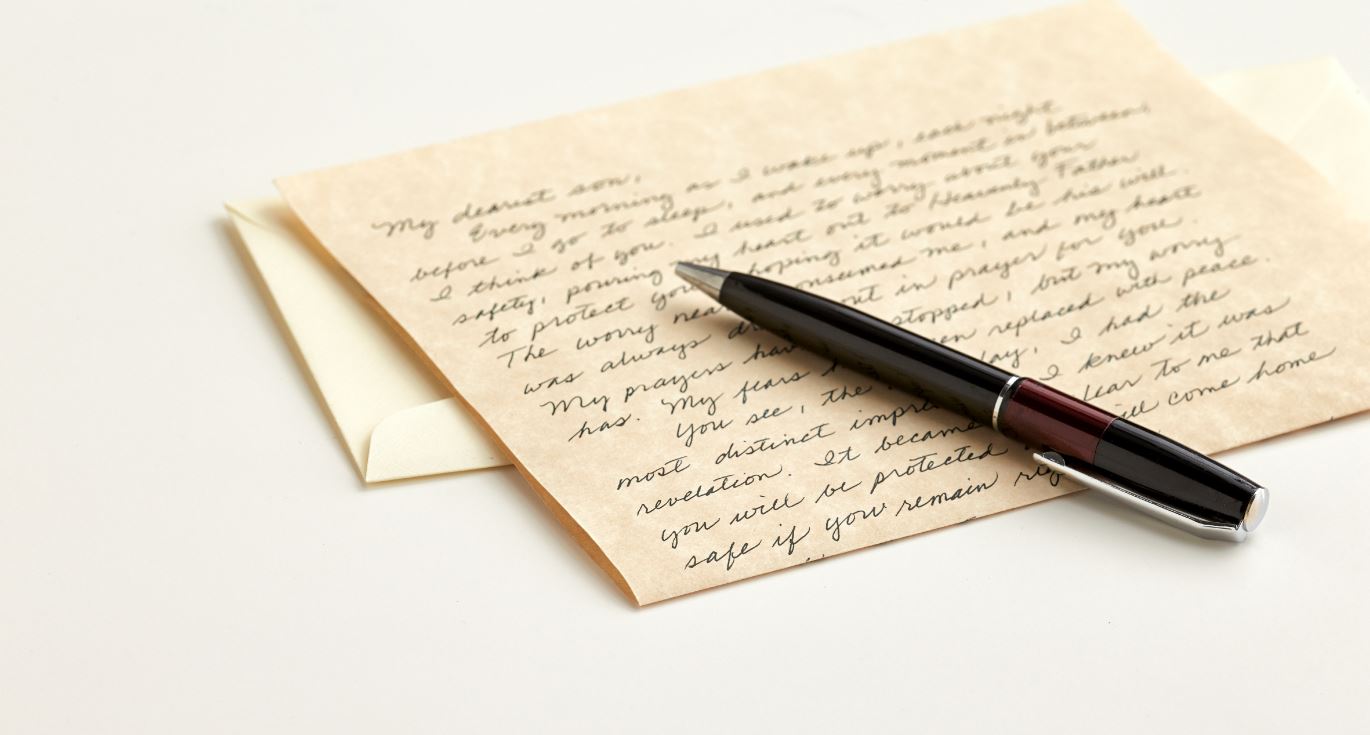 My dearest son,
Every morning as I wake up, each night
before I go to sleep, and every moment in between,
I think of you. I used to worry about your
safety, pouring my heart out to Heavenly Father
to protect you hoping it would be his will.
The worry consumed me, and my heart
was always out in prayer for you.
My prayers stopped, but my worry
has. My fears replaced with peace.
You see, the day, I had the
most distinct I knew it was
revelation. It became to me that
you will be protected will come home
safe if you remain